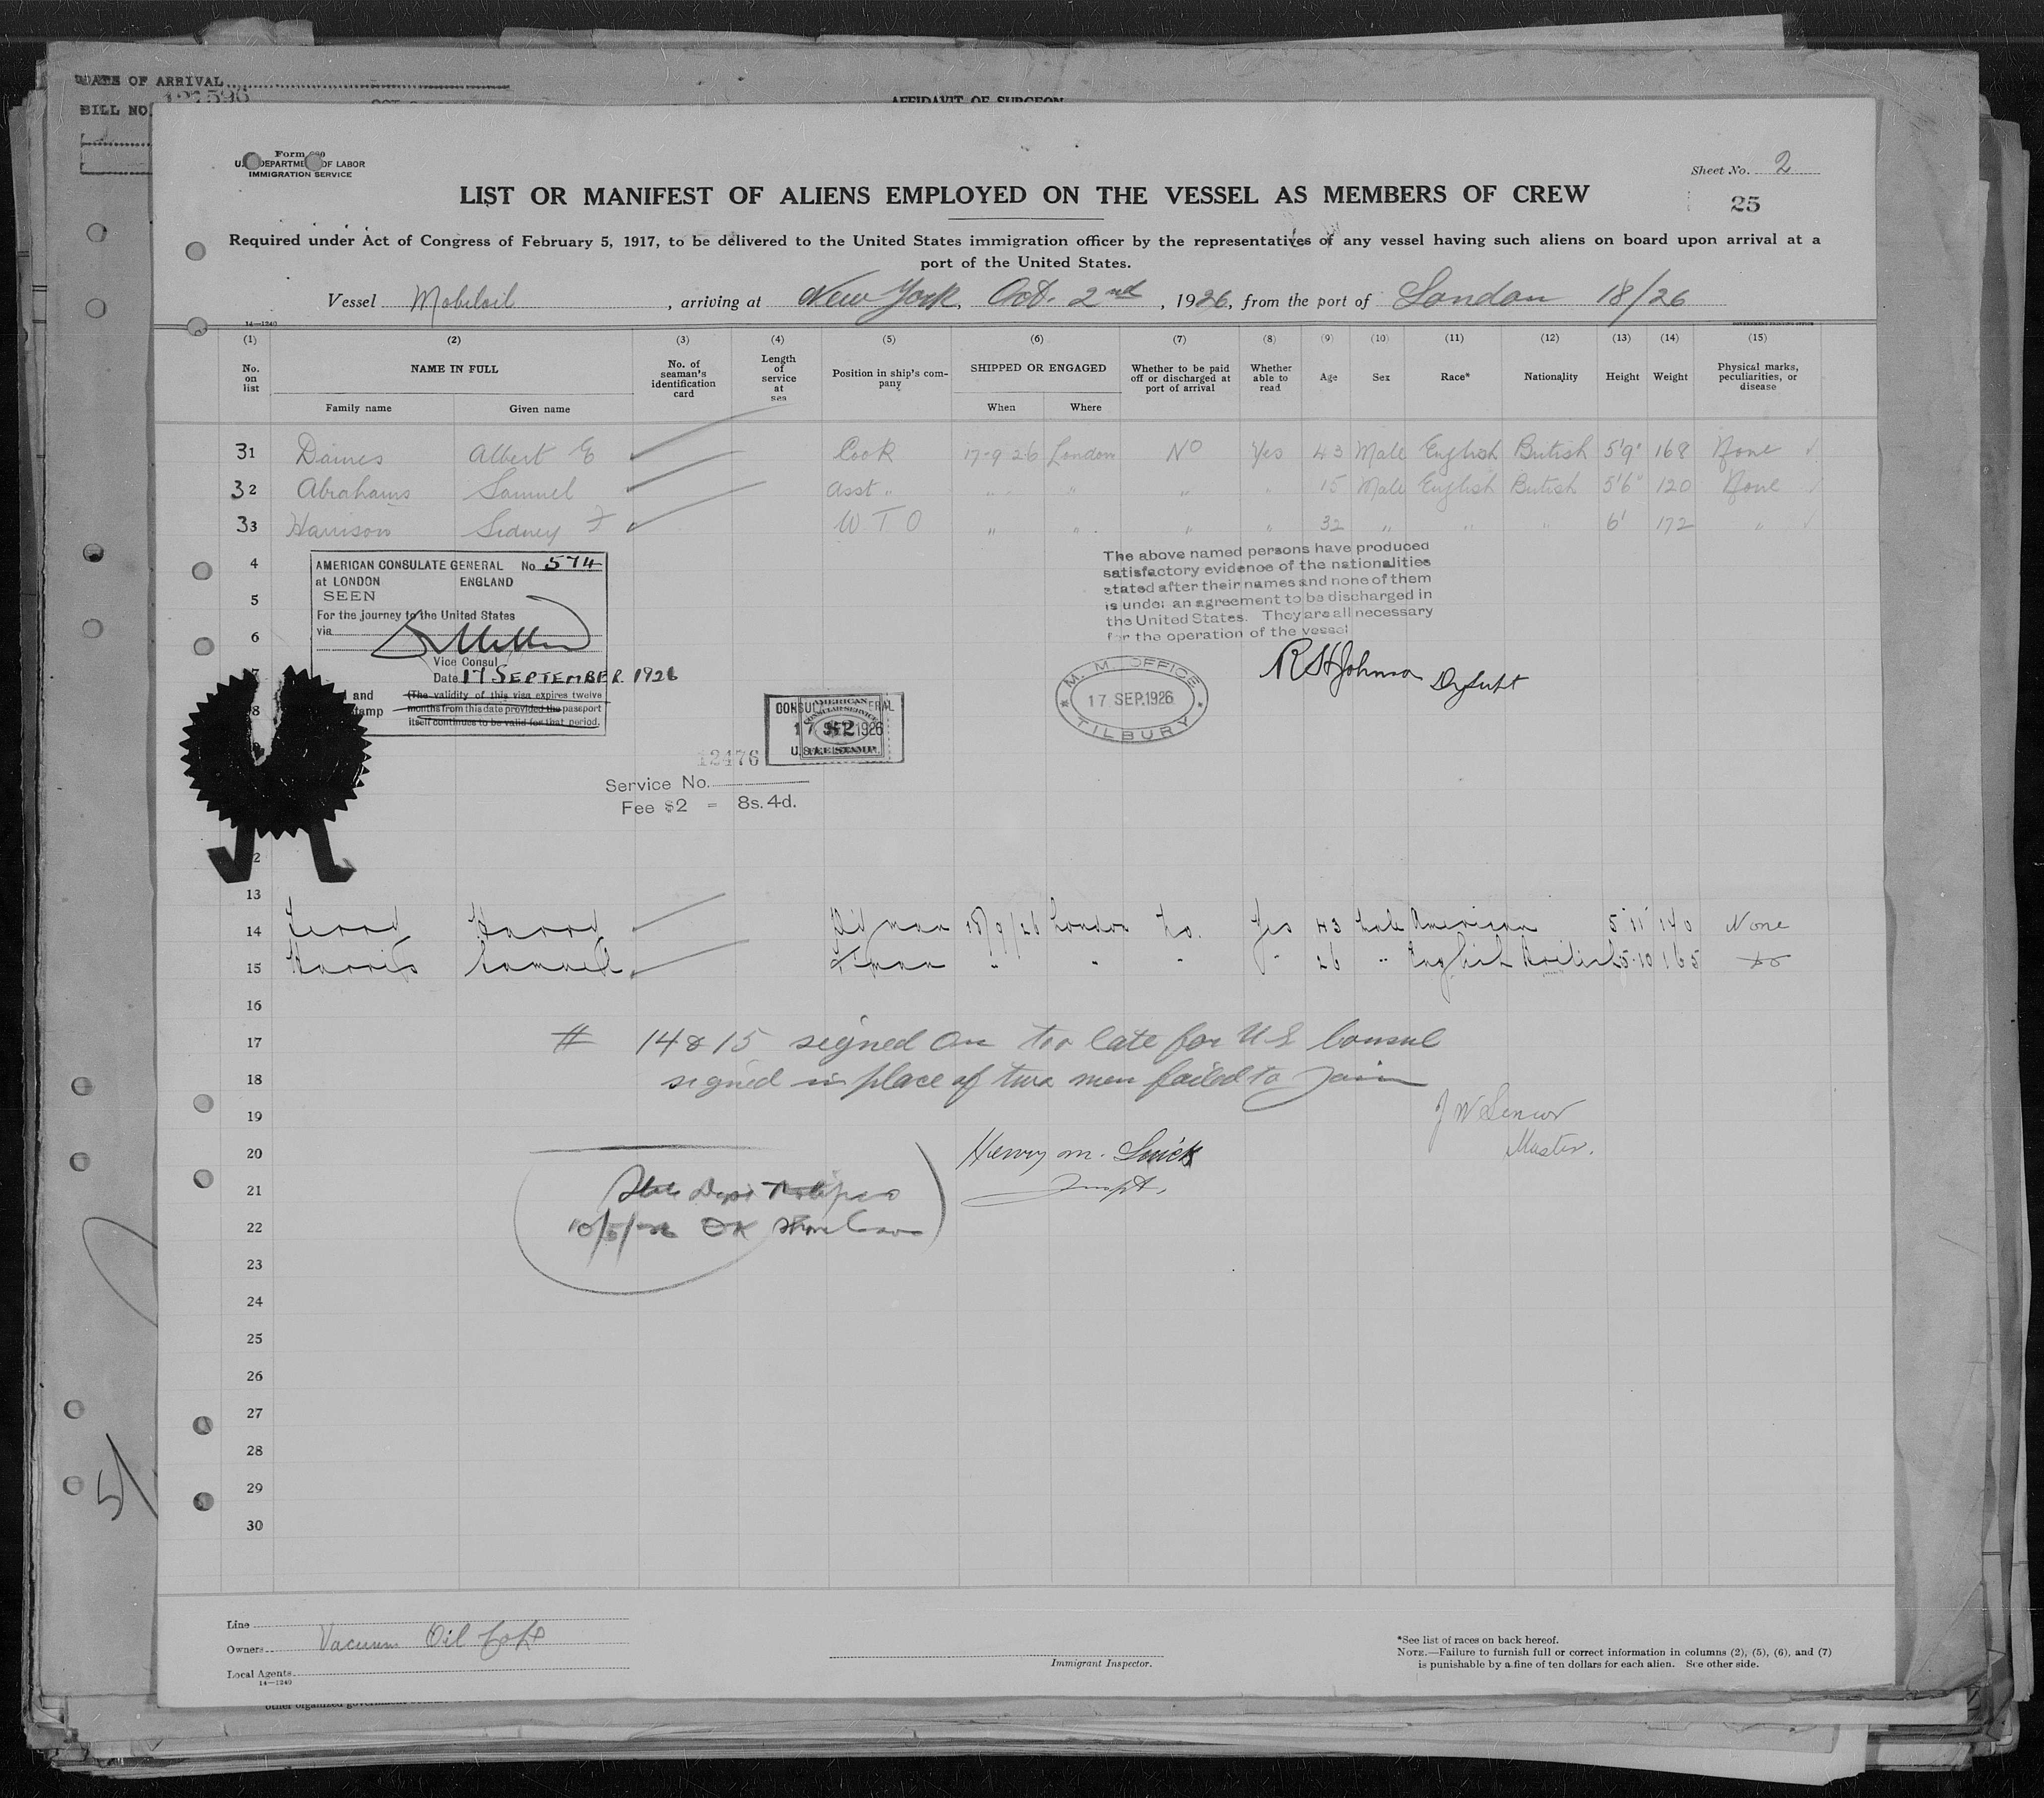 DATE OF ARRIVAL
BILL NO. 127596
AFFIDAVIT OF SURGEON
Form 680
U.S. DEPARTMENT OF LABOR
IMMIGRATION SERVICE
Sheet No. 2
25
LIST OR MANIFEST OF ALIENS EMPLOYED ON THE VESSEL AS MEMBERS OF CREW
Required under Act of Congress of February 5, 1917, to be delivered to the United States immigration officer by the representatives of any vessel having such aliens on board upon arrival at a
port of the United States.
Vessel Mobiloil, arriving at New York, Oct. 2nd, 1926, from the port of London 18/26
14—1240
(1) (2) (3) (4) (5) (6) (7) (8) (9) (10) (11) (12) (13) (14) (15)
No. on list NAME IN FULL No. of seaman's identification card Length of service at sea Position in ship's company SHIPPED OR ENGAGED Whether to be paid off or discharged at port of arrival Whether able to read Age Sex Race* Nationality Height Weight Physical marks, peculiarities, or disease
Family name Given name When Where
31 Daines Albert E Cook 17-9-26 London NO Yes 43 Male English British 5'9" 168 None
32 Abrahams Samuel Asst " " " " " 15 Male English British 5'6" 120 None
33 Harrison Sidney F W T O " " " " 32 " " " 6' 172 "
4
5
6
7
8
AMERICAN CONSULATE GENERAL No. 574
at LONDON ENGLAND
SEEN
For the journey to the United States
via
Vice Consul
Date 17 SEPTEMBER 1926
(The validity of this visa expires twelve
months from this date provided the passport
itself continues to be valid for that period.
and
stamp
The above named persons have produced
satisfactory evidence of the nationalities
stated after their names and none of them
is under an agreement to be discharged in
the United States. They are all necessary
for the operation of the vessel
R H Johnson Dy Supt
M. M. OFFICE
17 SEP. 1926
TILBURY
AMERICAN
CONSULAR SERVICE
17 SEP 1926
$2
U.S. FEE STAMP.
12476
Service No.
Fee $2 = 8s. 4d.
12
13
14 18/9/26 London No. Yes 43 Male American 5'11" 140 None
15 Harris Samuel F'man " " " " 26 " English British 5-10 165 Do
16
17 # 14 & 15 signed on too late for U S Consul
18 signed in place of two men failed to join
19 J W Senior
Master.
20 Henry M.
Inspt.
21 State Dept
22 10/5/26 OK Shore leave
23
24
25
26
27
28
29
30
5
Line
Owners Vacuum Oil Co Ld
Local Agents
14—1240
Immigrant Inspector.
*See list of races on back hereof.
NOTE.—Failure to furnish full or correct information in columns (2), (5), (6), and (7)
is punishable by a fine of ten dollars for each alien. See other side.